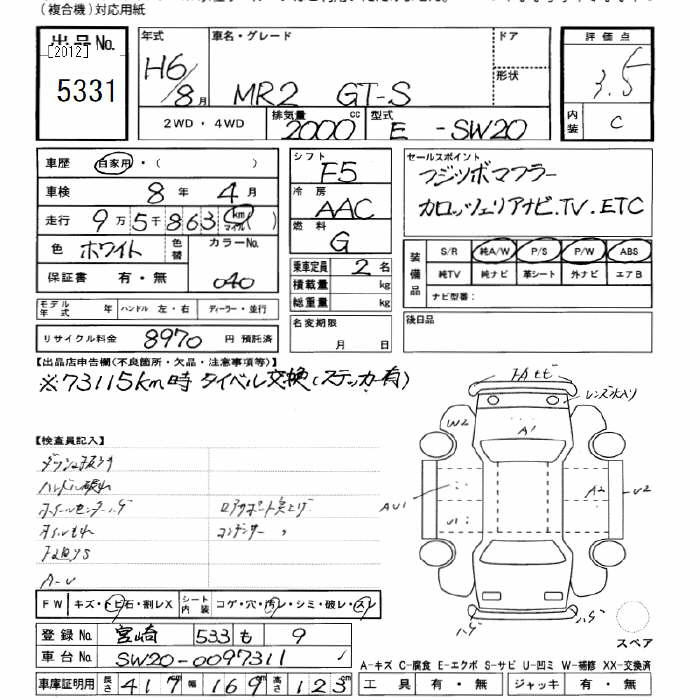 (複合機)対応用紙
出品No.
[2012]
5331
年式
H6/8月
車名・グレード
MR2 GT-S
ドア
形状
2WD・4WD
排気量
2000cc
型式
E-SW20
評価点
3.5
内装
C
車歴 自家用・( )
車検 8年 4月
走行 9万5千863 km マイル( )
色 ホワイト 色替 カラーNo.
040
保証書 有・無
モデル年式 年 ハンドル 左・右 ディーラー・並行
リサイクル料金 8970 円 預託済
シフト
F5
冷房
AAC
燃料
G
乗車定員 2名
積載量 kg
総重量 kg
名変期限
月 日
セールスポイント
フジツボマフラー
カロッツェリアナビ.TV.ETC
装備品
S/R 純A/W P/S P/W ABS
純TV 純ナビ 革シート 外ナビ エアB
ナビ型番:
後日品
【出品店申告欄(不良箇所・欠品・注意事項等)】
※73115km時 タイベル交換(ステッカー有)
【検査員記入】
ハンドル破れ
オイルもれ
A-U
FW キズ・トビ石・割レX
シート内装 コゲ・穴・汚レ・シミ・破レ・スレ
登録No. 宮崎 533 も 9
車台No. SW20-0097311
車庫証明用 長さ 417cm 幅 169cm 高さ 123cm
レンズ水入り
W2
A1
AU1
U1
A2
U2
ハゲ
ハゲ
スペア
A-キズ C-腐食 E-エクボ S-サビ U-凹ミ W-補修 XX-交換済
工具 有・無 ジャッキ 有・無